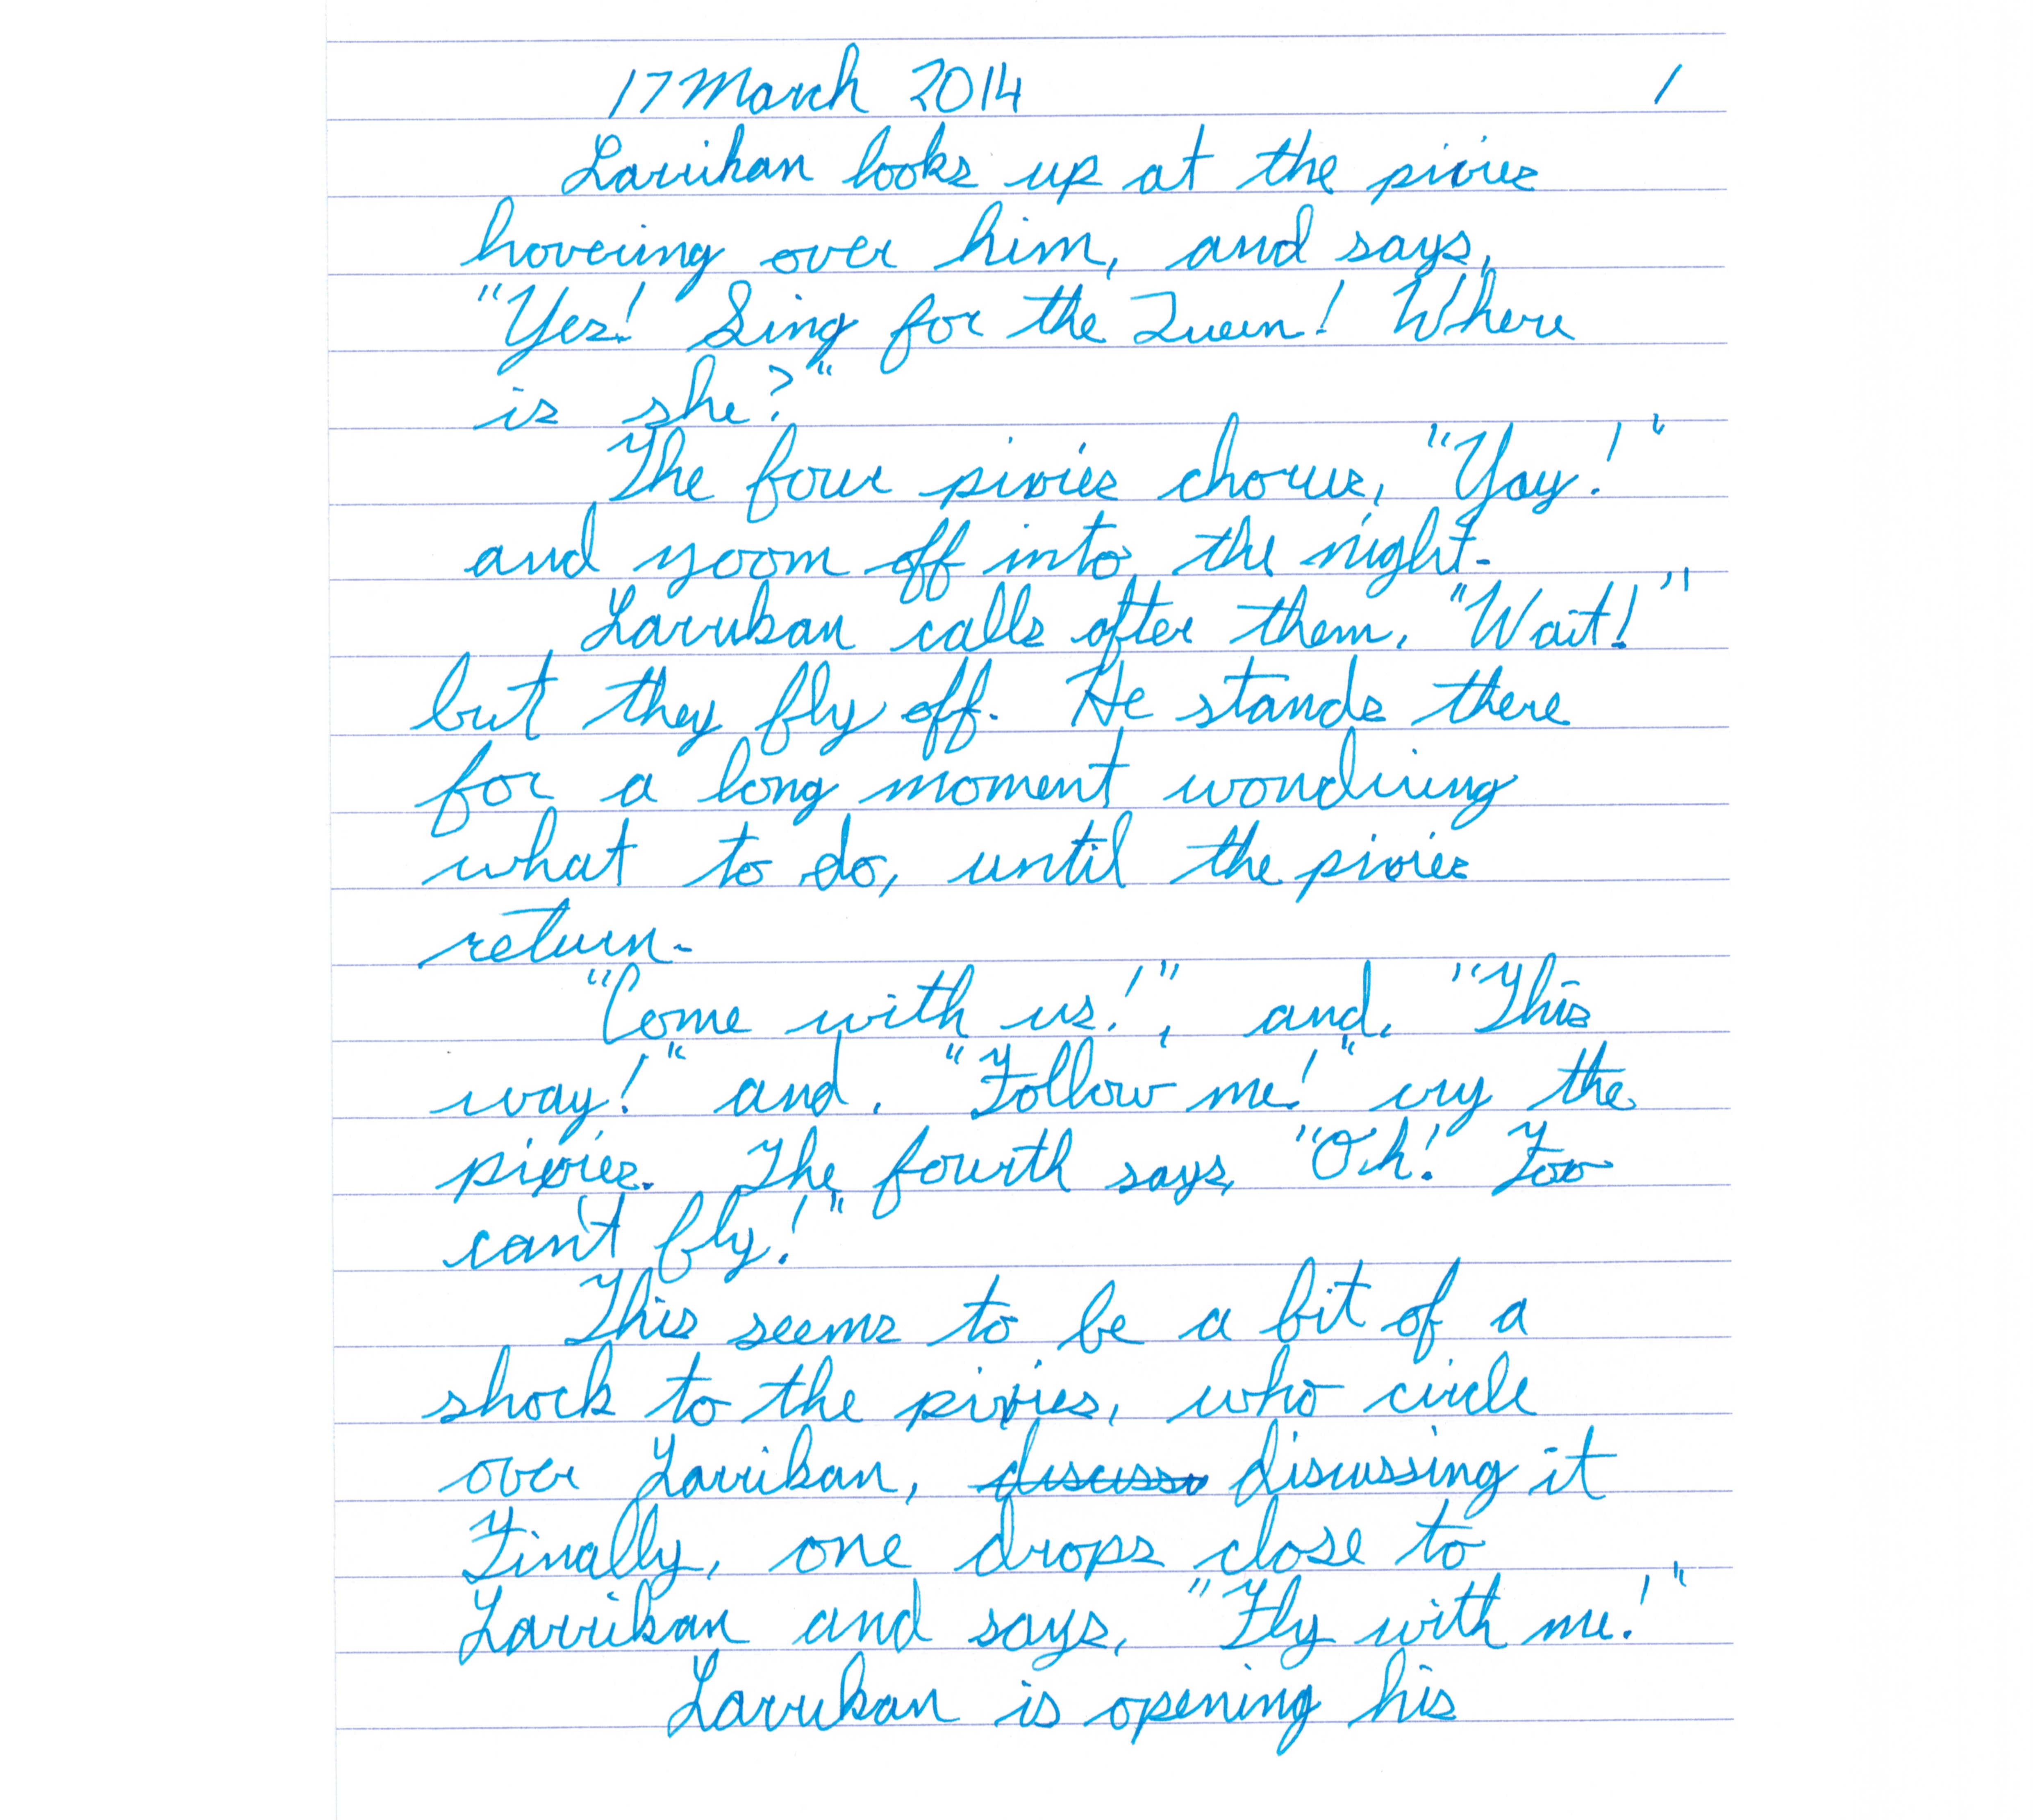 17 March 2014 1
Larrikan looks up at the pixies
hovering over him, and says,
"Yes! Sing for the Queen! Where
is she?"
The four pixies chorus, "Yay!"
and zoom off into the night.
Larrikan calls after them, "Wait!"
but they fly off. He stands there
for a long moment wondering
what to do, until the pixies
return.
"Come with us!", and, "This
way!" and, "Follow me!" cry the
pixies. The fourth says, "Oh! You
can't fly!"
This seems to be a bit of a
shock to the pixies, who circle
over Larrikan, discusso discussing it
Finally, one drops close to
Larrikan and says, "Fly with me!"
Larrikan is opening his